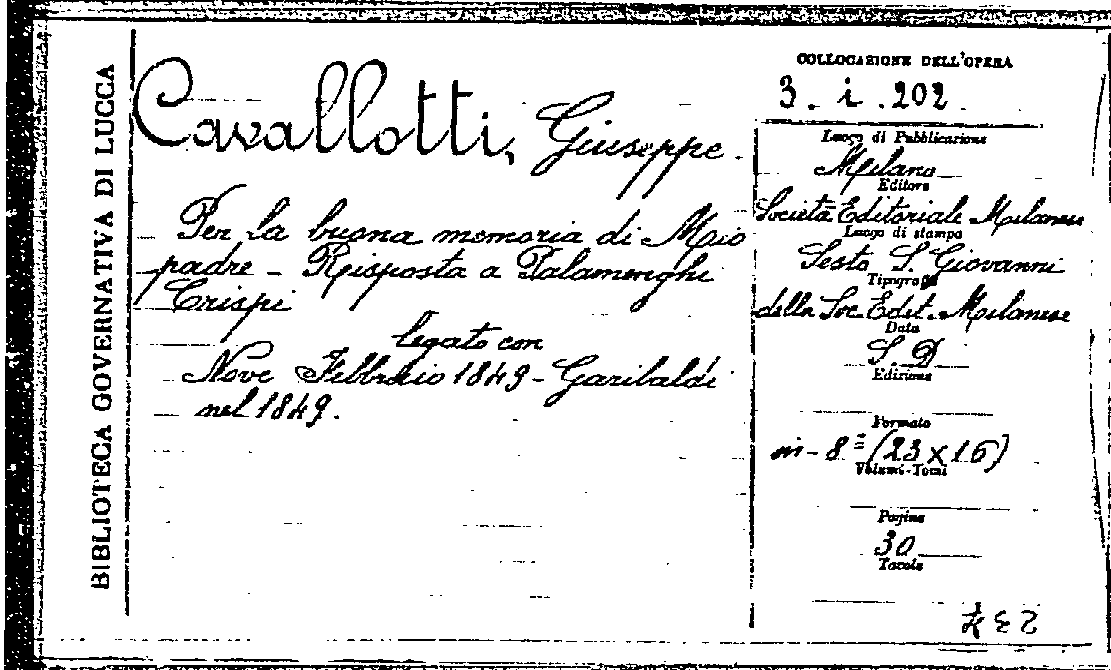 BIBLIOTECA GOVERNATIVA DI LUCCA
Cavallotti, Giuseppe.
Per la buona memoria di Mio
padre - Risposta a Palamenghi
Crispi
legato con
Nove Febbraio 1849 - Garibaldi
nel 1849.
COLLOCAZIONE DELL'OPERA
3. i. 202.
Luogo di Pubblicazione
Milano
Editore
Società Editoriale Milanese
Luogo di stampa
Sesto S. Giovanni
Tipografia
della Soc. Edit. Milanese
Data
S. D
Edizione
Formato
in - 8º (23 x 16)
Volumi-Tomi
Pagine
30
Tavole